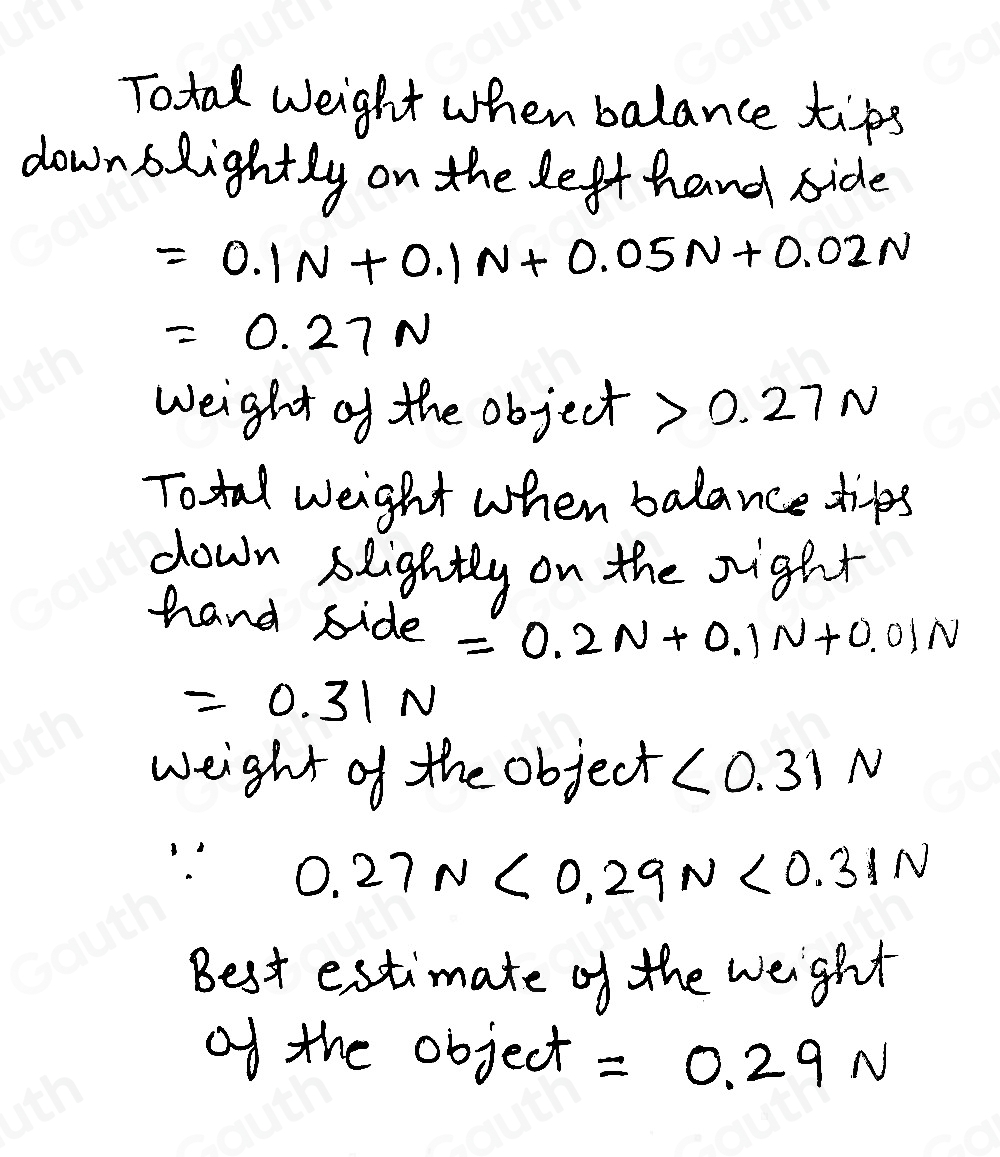 Total weight when balance tips
down slightly on the left hand side
= 0.1N + 0.1N + 0.05N + 0.02N
= 0.27 N
Weight of the object > 0.27N
Total weight when balance tips
down slightly on the right
hand side = 0.2N + 0.1N + 0.01N
= 0.31 N
weight of the object < 0.31 N
∵ 0.27N < 0.29N < 0.31N
Best estimate of the weight
of the object = 0.29 N
Gauth